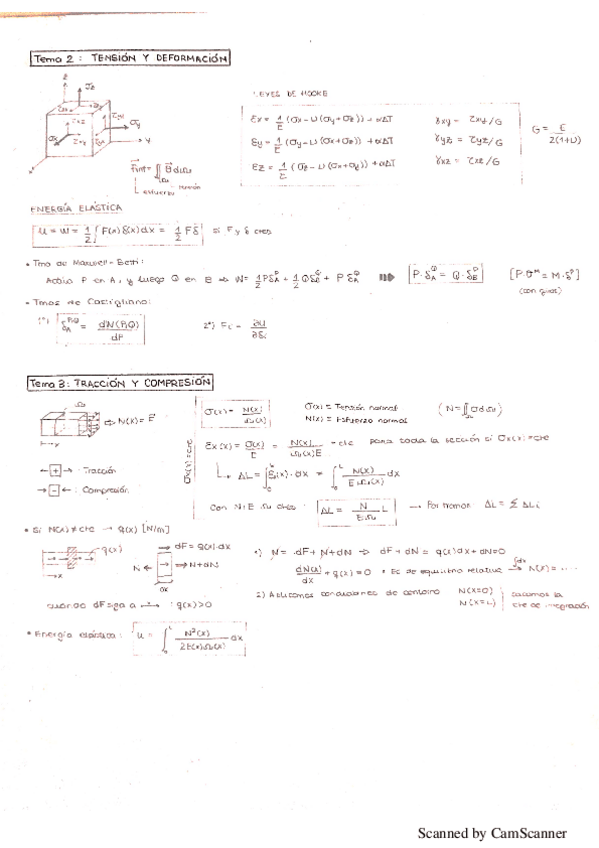 Tema 2 : TENSIÓN Y DEFORMACIÓN
LEYES DE HOOKE
εx = 1/E (σx - υ(σy + σz)) + α∆T    γxy = τxy/G
εy = 1/E (σy - υ(σx + σz)) + α∆T    γyz = τyz/G    G = E/2(1+υ)
εz = 1/E (σz - υ(σx + σy)) + α∆T    γxz = τxz/G
esfuerzo tensión
ENERGÍA ELÁSTICA
U = W = 1/2 ∫ F(x) δ(x) dx = 1/2 F δ si F y δ ctes
• Tmo de Maxwell - Betti :
Actúa P en A, y luego Q en B ⇒ W = 1/2 PδA^P + 1/2 QδB^Q + PδA^Q ⇒ P·δA^Q = Q·δB^P [P·θ^M = M·δ^P]
(con giros)
• Tmos de Castigliano :
1º) δA^P,Q = dW(P,Q)/dP    2º) Fi = ∂U/∂δi
Tema 3 : TRACCIÓN Y COMPRESIÓN
⇒ N(x) = F    σ(x) = N(x)/Ω(x)    σ(x) = Tensión normal    (N = ∬ σ dΩ)
N(x) = Esfuerzo normal
σx(x) = cte
εx(x) = σ(x)/E = N(x)/Ω(x)E = cte para toda la sección si σx(x) = cte
← + → : Tracción
∆L = ∫ εx(x) · dx = ∫ N(x)/EΩ(x) dx
→ - ← : Compresión
Con N, E, Ω ctes : ∆L = N/EΩ L → Por tramos ∆L = Σ ∆Li
• Si N(x) ≠ cte → q(x) [N/m]
q(x)    dF = q(x)·dx    N ← → N+dN    dx
1) N = dF + N + dN ⇒ dF + dN = q(x)dx + dN = 0
dN(x)/dx + q(x) = 0 • Ec de equilibrio relativa → N(x) = ....
cuando dF siga a → : q(x) > 0
2) Aplicamos condiciones de contorno N(x=0) N(x=L) sacamos la cte de integración
• Energía elástica : U = ∫ N²(x)/2E(x)Ω(x) dx
Scanned by CamScanner